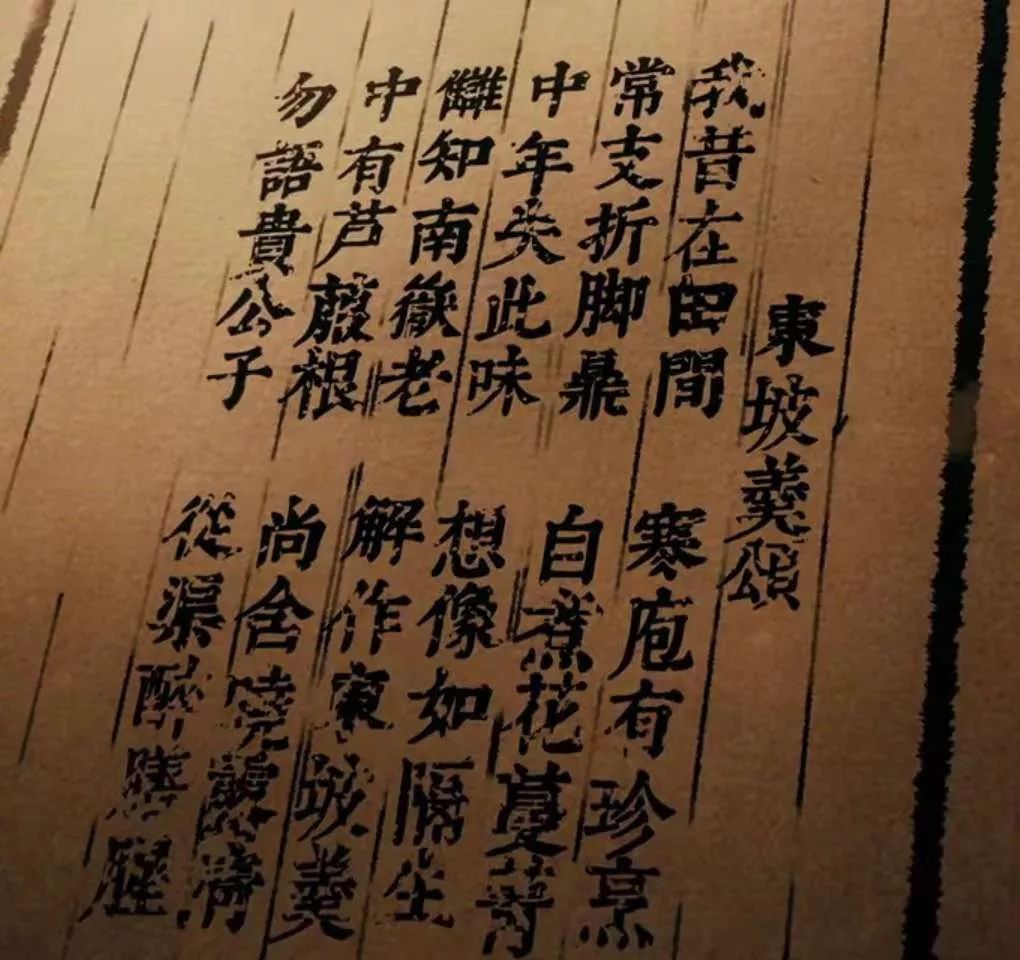 東坡羹頌
我昔在田間 寒庖有珍烹
常支折脚鼎 自煮花蔓菁
中年失此味 想像如隔生
知南嶽老 解作東坡羹
中有芦菔根 尚含曉露清
勿語貴公子 從渠醉膻腥